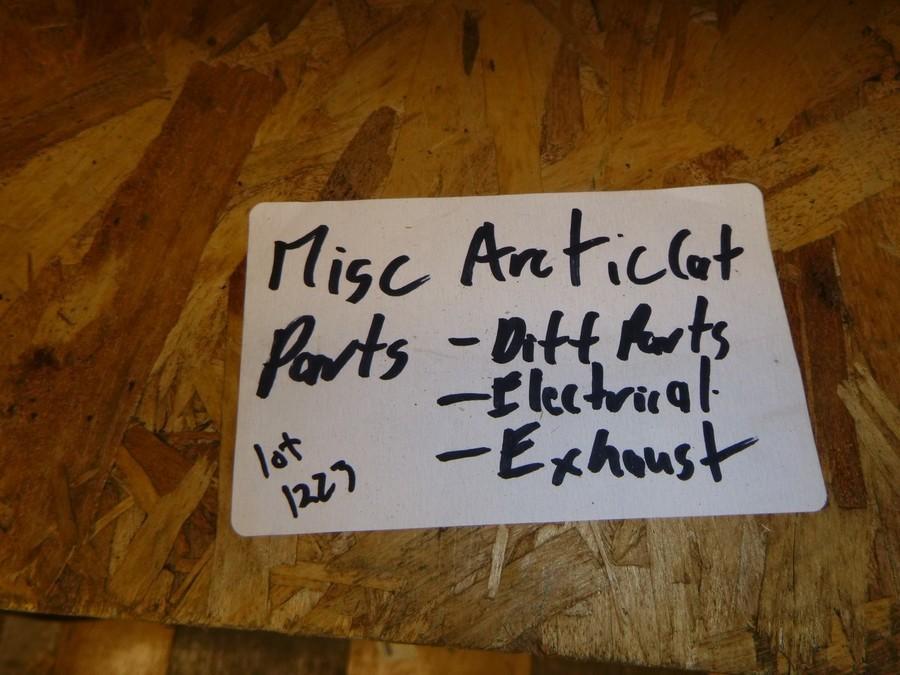 Misc ArcticCat
Parts - Diff Parts
- Electrical
- Exhaust
lot
1223